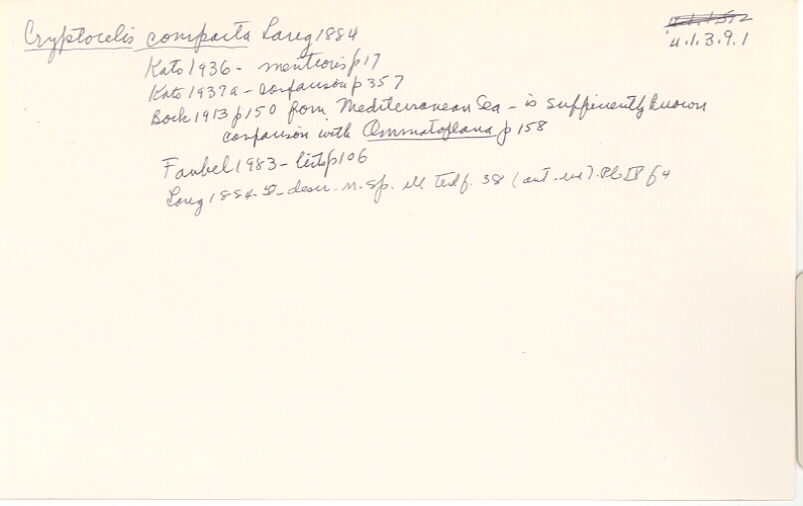 Cryptocelis compacta Lang 1884
4.1.3.9.1
Kato 1936 - mentions p 17
Kato 1937a - comparison p 357
Bock 1913 p 150 from Mediterranean Sea - is sufficiently known
comparison with Ommatoplana p 158
Faubel 1983 - lists p 106
Lang 1884 - descr. n. sp. ill text f. 38 (ant. end). Pl IV f 4